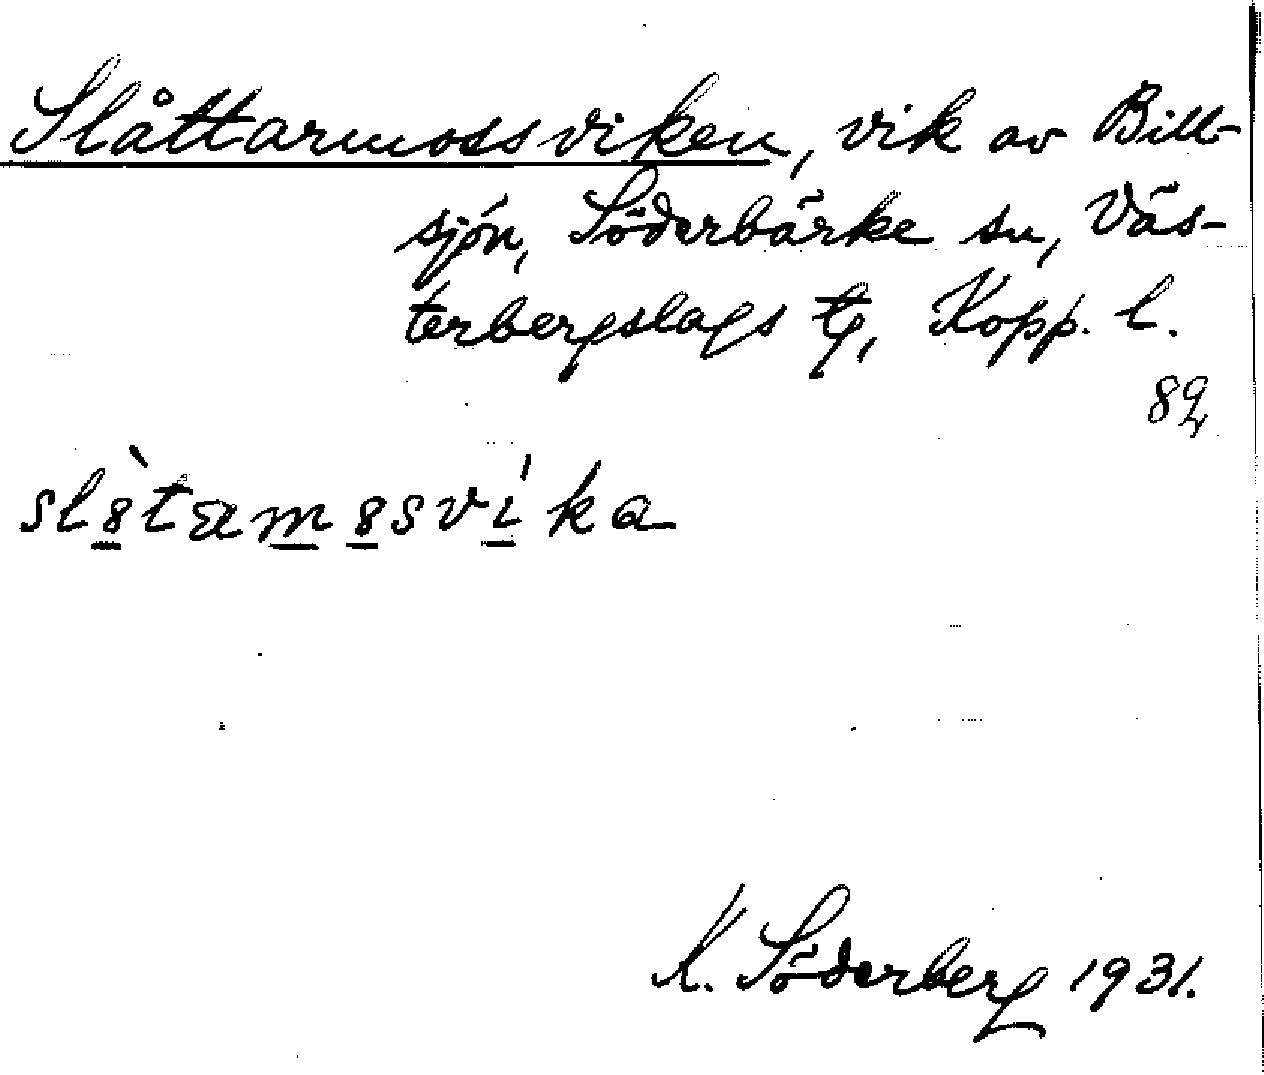 Slåttarmossviken, vik av Bill-
sjön, Söderbärke sn, Väs-
terbergslags tg, Kopp. l.
82
sl8̀tam8svíka
K. Söderberg 1931.